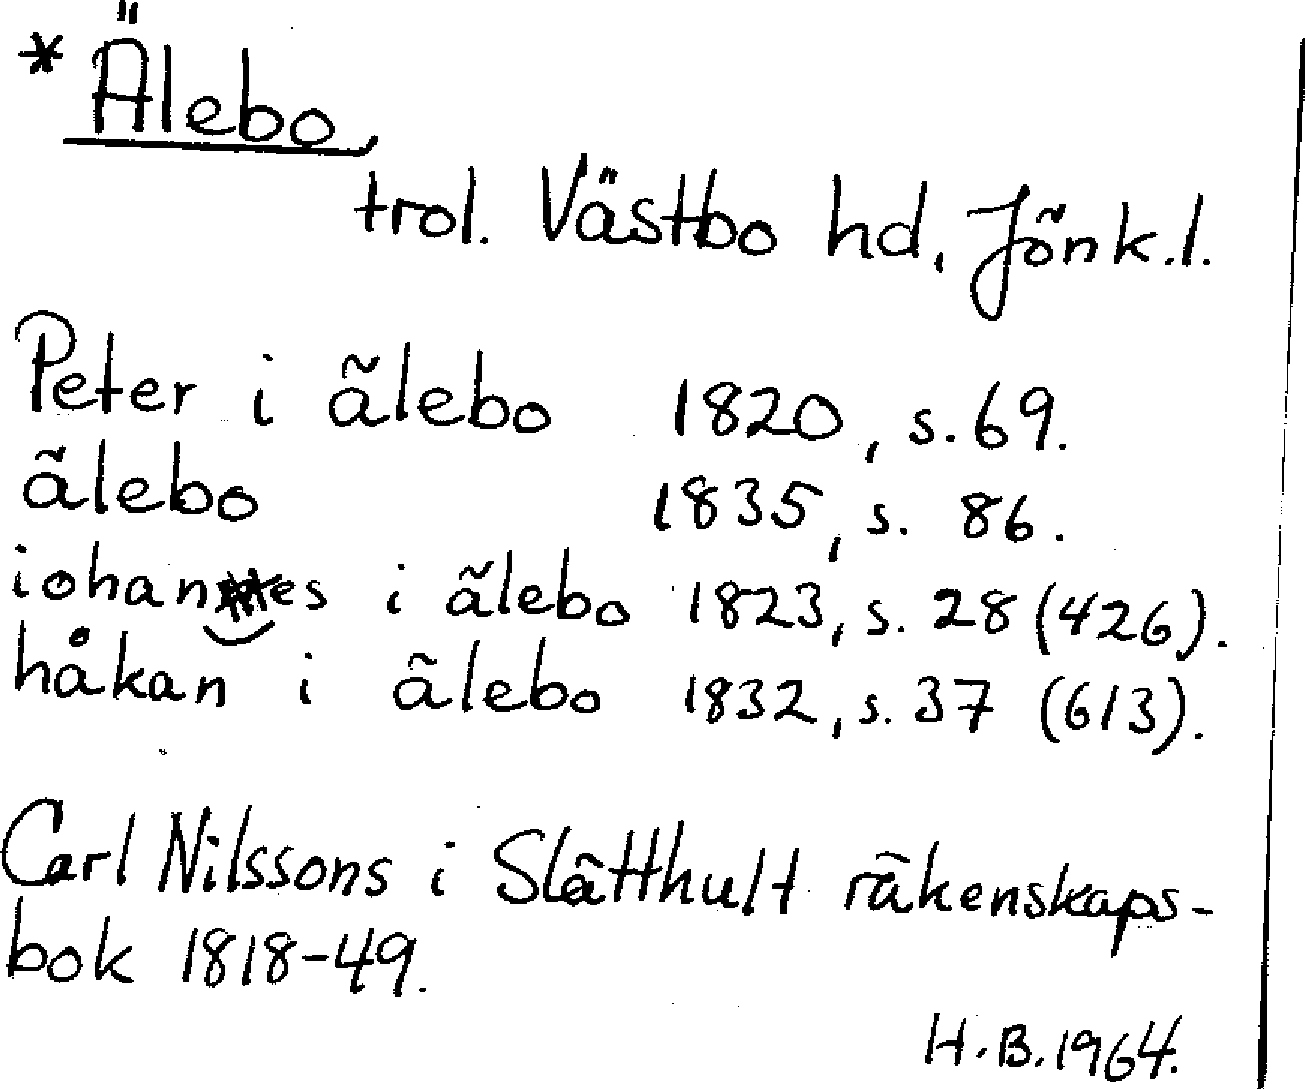 * Älebo,
trol. Västbo hd, Jönk.l.
Peter i älebo 1820, s.69.
älebo 1835, s. 86.
iohannes i älebo 1823, s. 28 (426).
håkan i älebo 1832, s. 37 (613).
Carl Nilssons i Slätthult räkenskaps-
bok 1818-49.
H.B.1964.